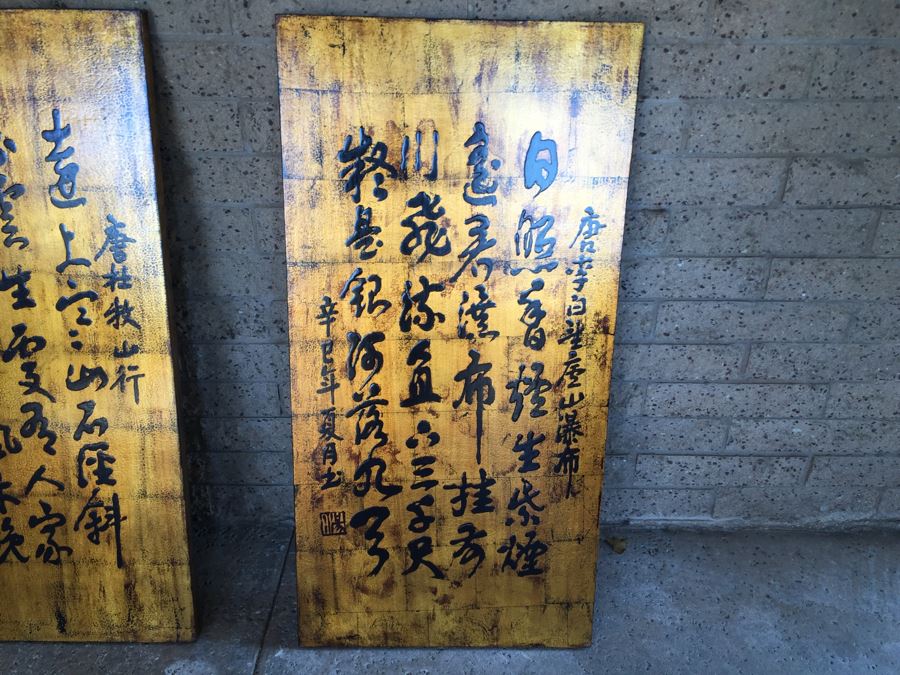 唐李白望廬山瀑布
日照香爐生紫煙
遙看瀑布挂前
川飛流直下三千尺
疑是銀河落九天
辛巳年夏月书
唐杜牧山行
遠上寒山石徑斜
白雲生處有人家
林晚